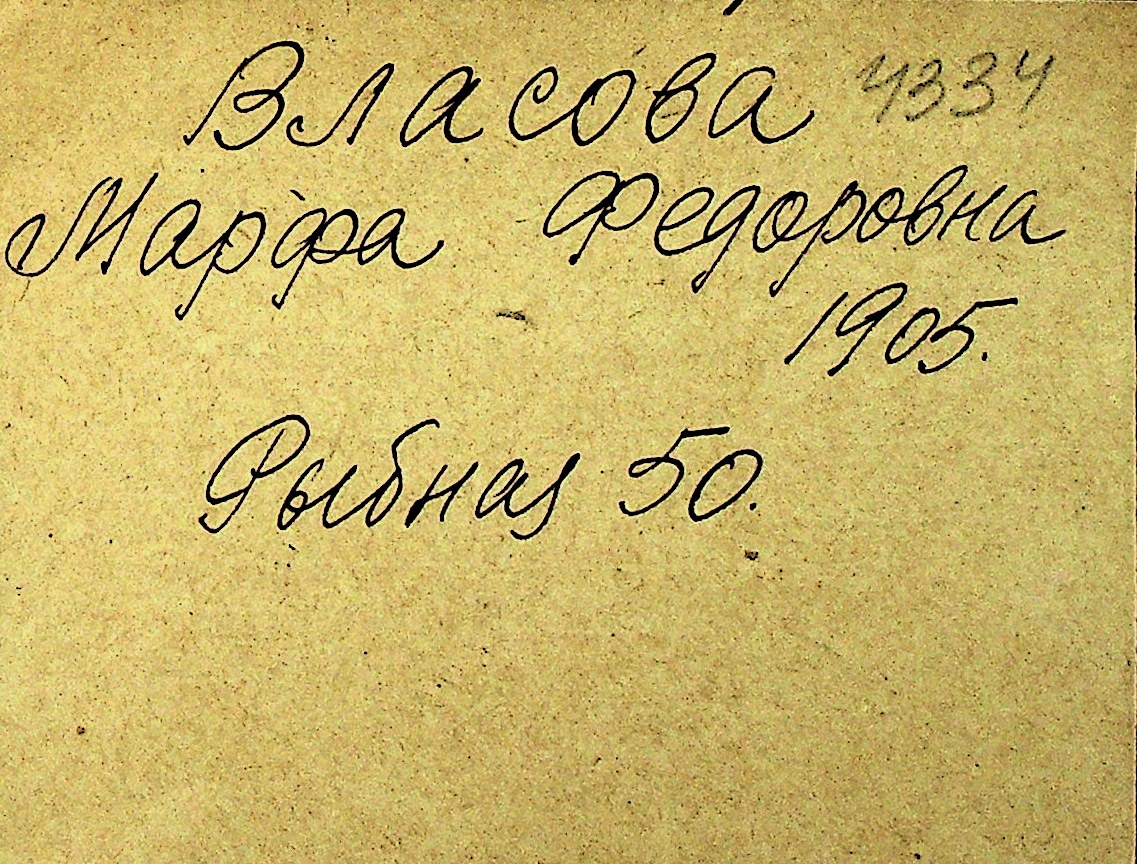 Власова 4334
Марфа Федоровна
1905.
Рыбная 50.